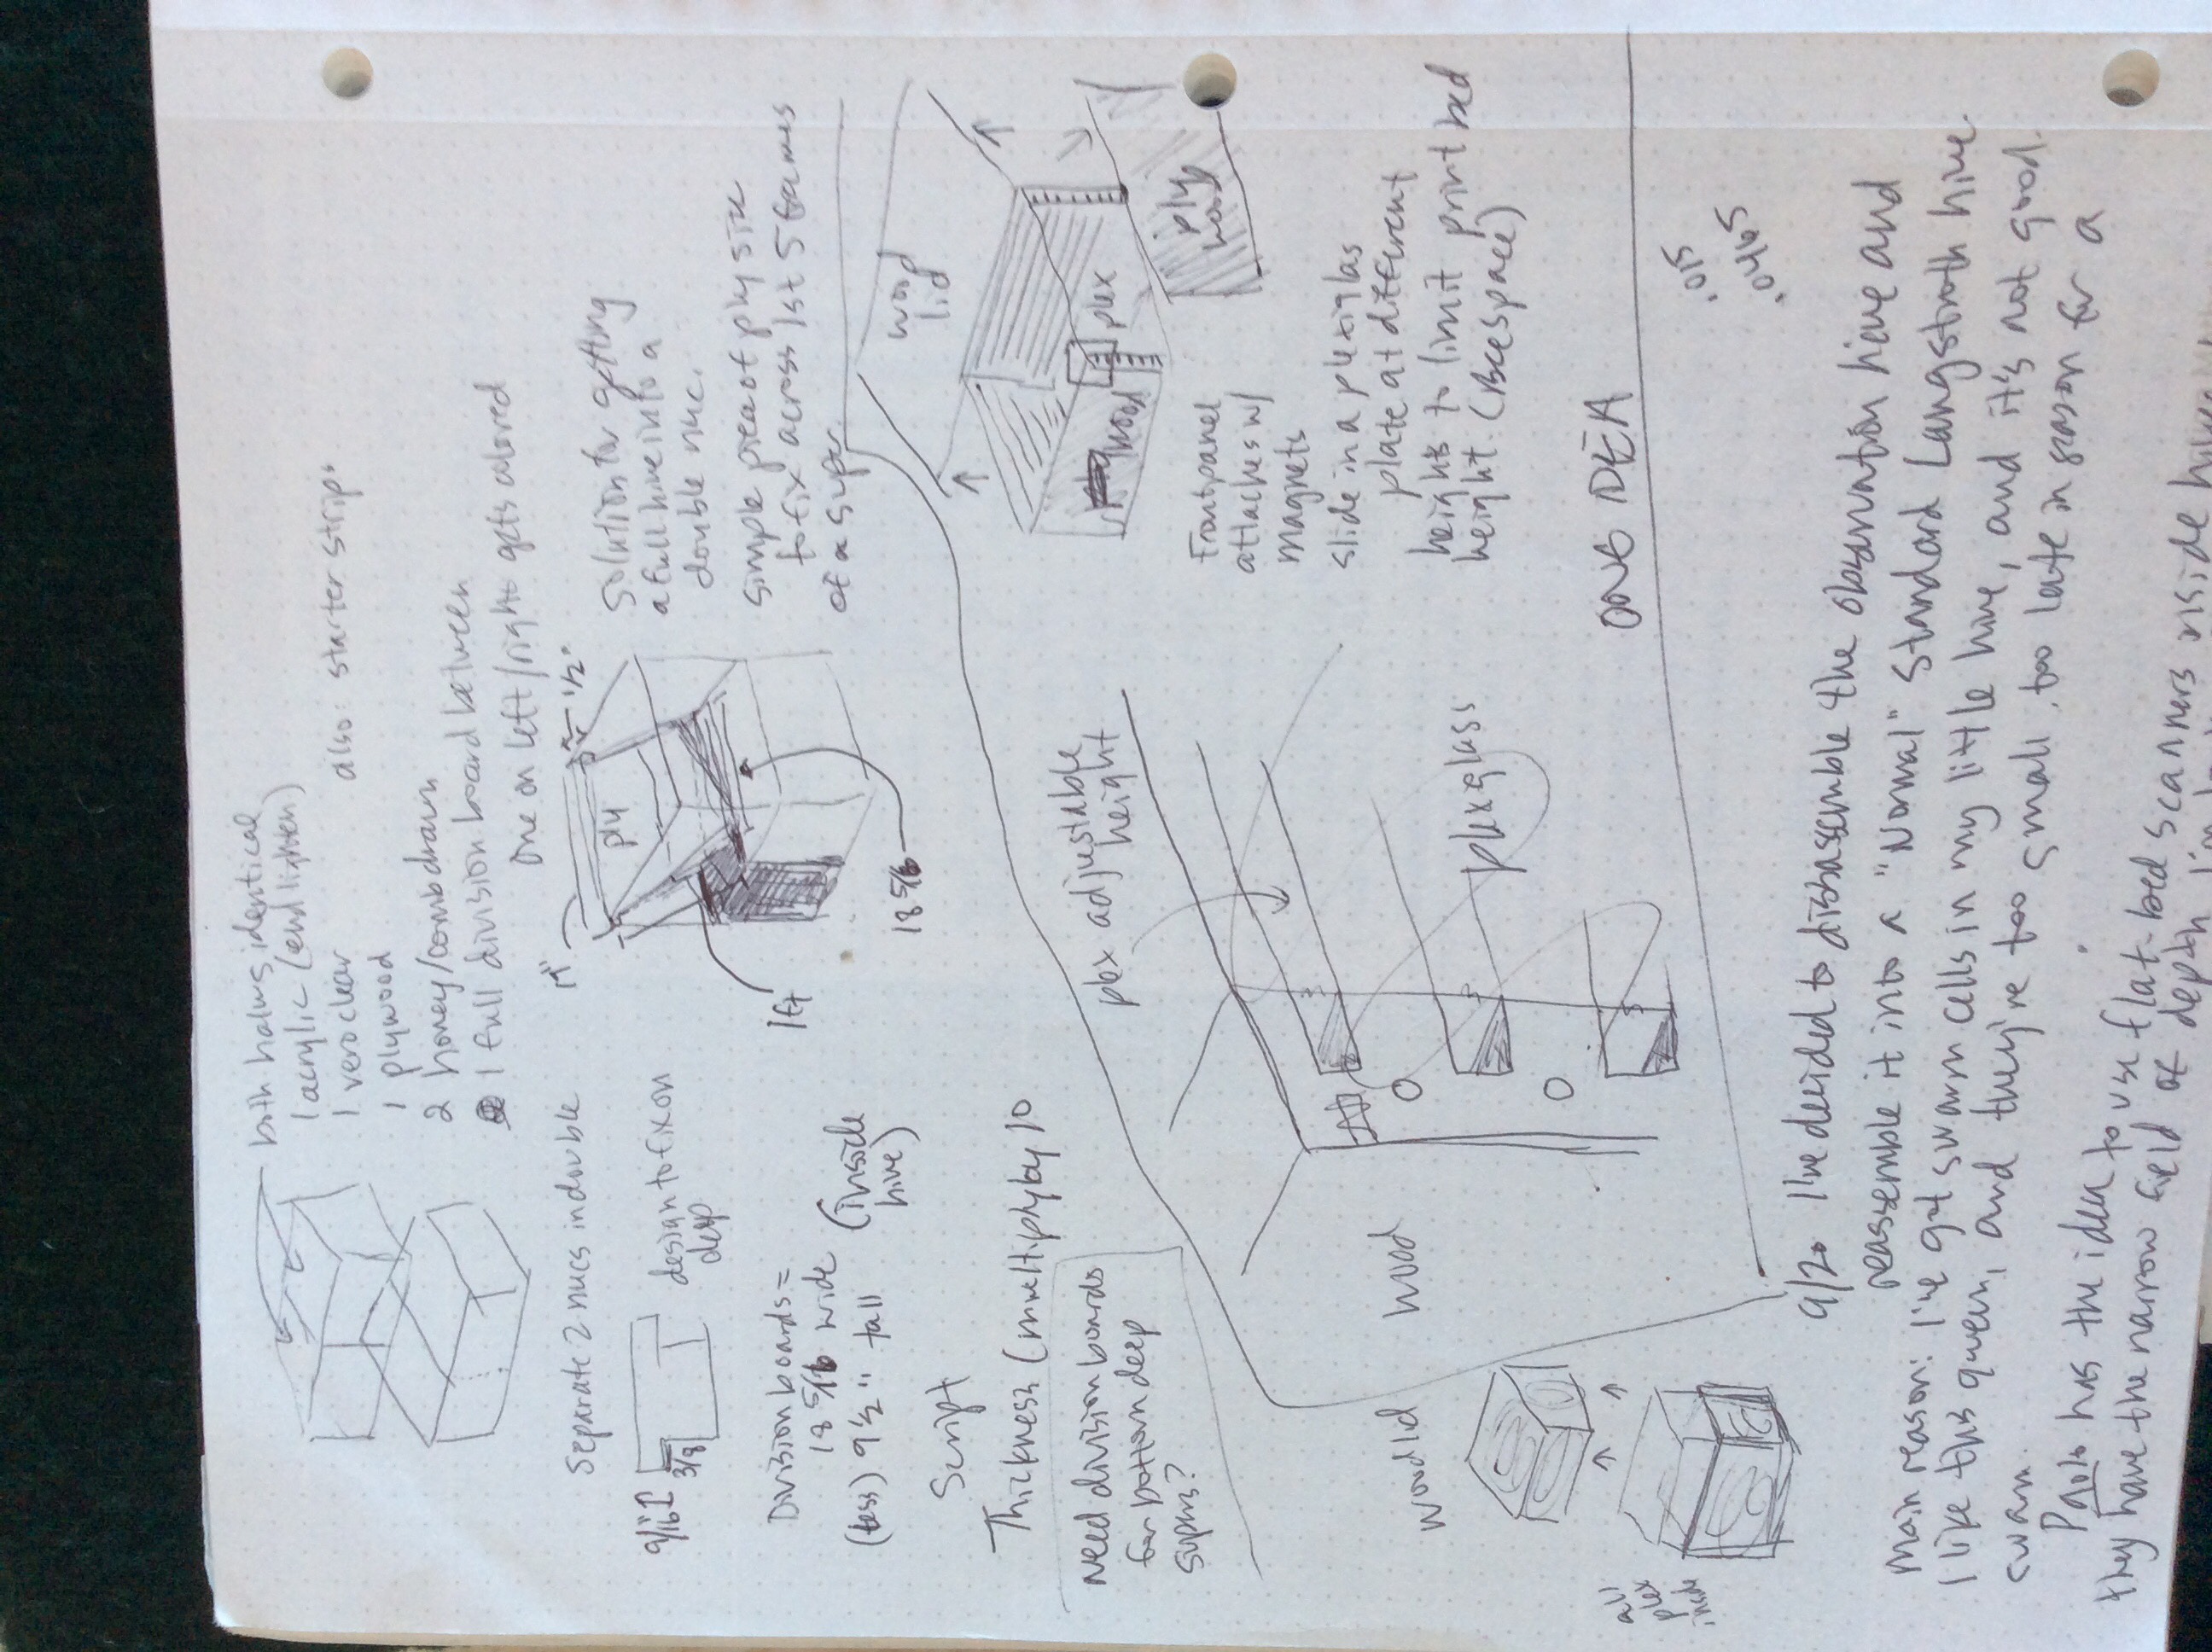 both halves identical
1 acrylic (end listen)
1 veroclear
1 plywood
2 honey/comb drawn
1 full division board between
One on left/right gets colored
also: starter strips
Separate 2 nucs in double
9/16"
3/8
design to fix on
deep
Division boards =
18 5/16 wide (inside
hive)
(less) 9 1/2" tall
Script
Thickness (multiply by 10
Need division boards
for bottom deep
supers?
1"
1/2"
ply
1ft
18 5/16
Solution for getting
a full hive into a
double nuc.
Simple piece of ply size
to fix across 1st 5 frames
of a super
wood
lid
plex
wood
ply
wood
Front panel
attaches w/
magnets
Slide in a plexiglas
plate at different
heights to limit print bed
height. (Beespace)
plex adjustable
height
plexglass
Wood
Wood lid
all
plex
inside
ONG IDEA
.015
.0465
9/20 I've decided to disassemble the observation hive and
reassemble it into a "Normal" Standard Langstroth hive.
Main reason: I've got swarm cells in my little hive, and it's not good.
I like this queen, and they're too small, too late in season for a
swarm.
has the idea to use flat bed scanners inside hive
they have the narrow field of depth